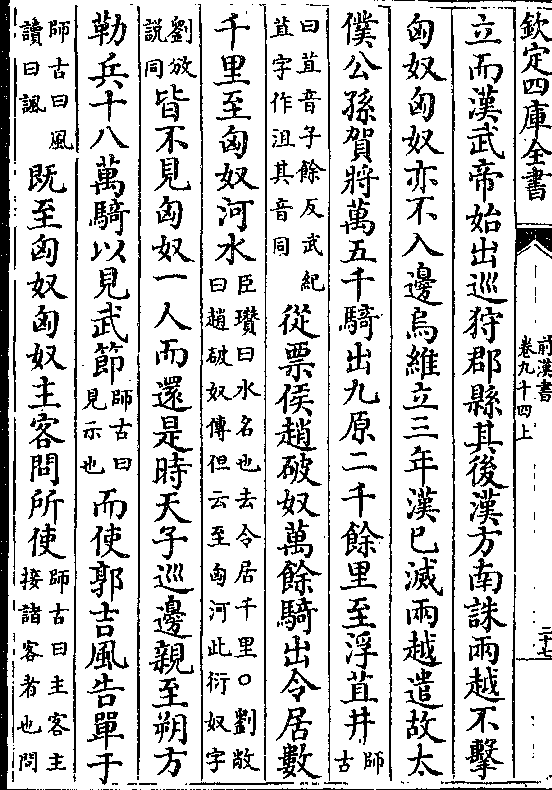 欽定四庫全書
前漢書
卷九十四上
二十七
立而漢武帝始出巡狩郡縣其後漢方南誅兩越不擊
匈奴匈奴亦不入邊烏維立三年漢已滅兩越遣故太
僕公孫賀將萬五千騎出九原二千餘里至浮苴井師古
曰苴音子餘反武紀苴字作沮其音同從票侯趙破奴萬餘騎出令居數
千里至匈奴河水臣瓚曰水名也去令居千里○劉敞曰趙破奴傳但云至匈河此衍奴字
劉攽說同皆不見匈奴一人而還是時天子巡邊親至朔方
勒兵十八萬騎以見武節師古曰見示也而使郭吉風告單于
師古曰風讀曰諷既至匈奴匈奴主客問所使師古曰主客主接諸客者也問